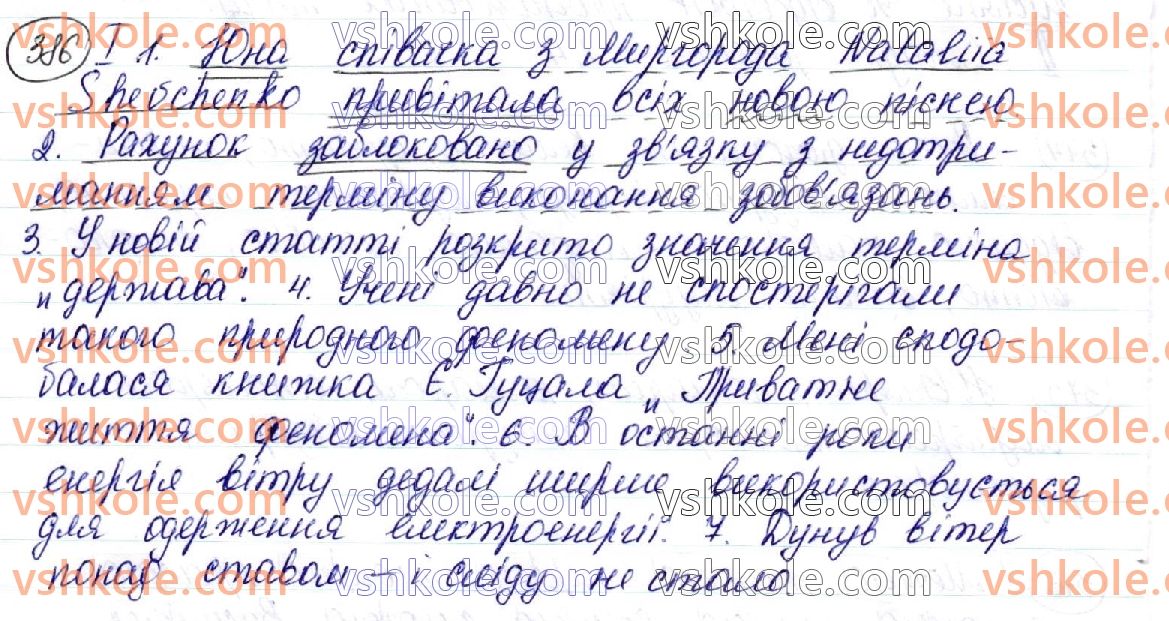 386 I 1. Юна співачка з Миргорода Nataliia
Shevchenko привітала всіх новою піснею.
2. Рахунок заблоковано у зв'язку з недотри-
манням терміну виконання зобов'язань.
3. У новій статті розкрито значення терміна
„держава". 4. Учені давно не спостерігали
такого природного феномену 5. Мені сподо-
балася книжка Є. Гуцала „Приватне
життя феномена". 6. В останні роки
енергія вітру дедалі ширше використовується
для одерження електроенергії. 7. Дунув вітер
понад ставом – і сліду не стало